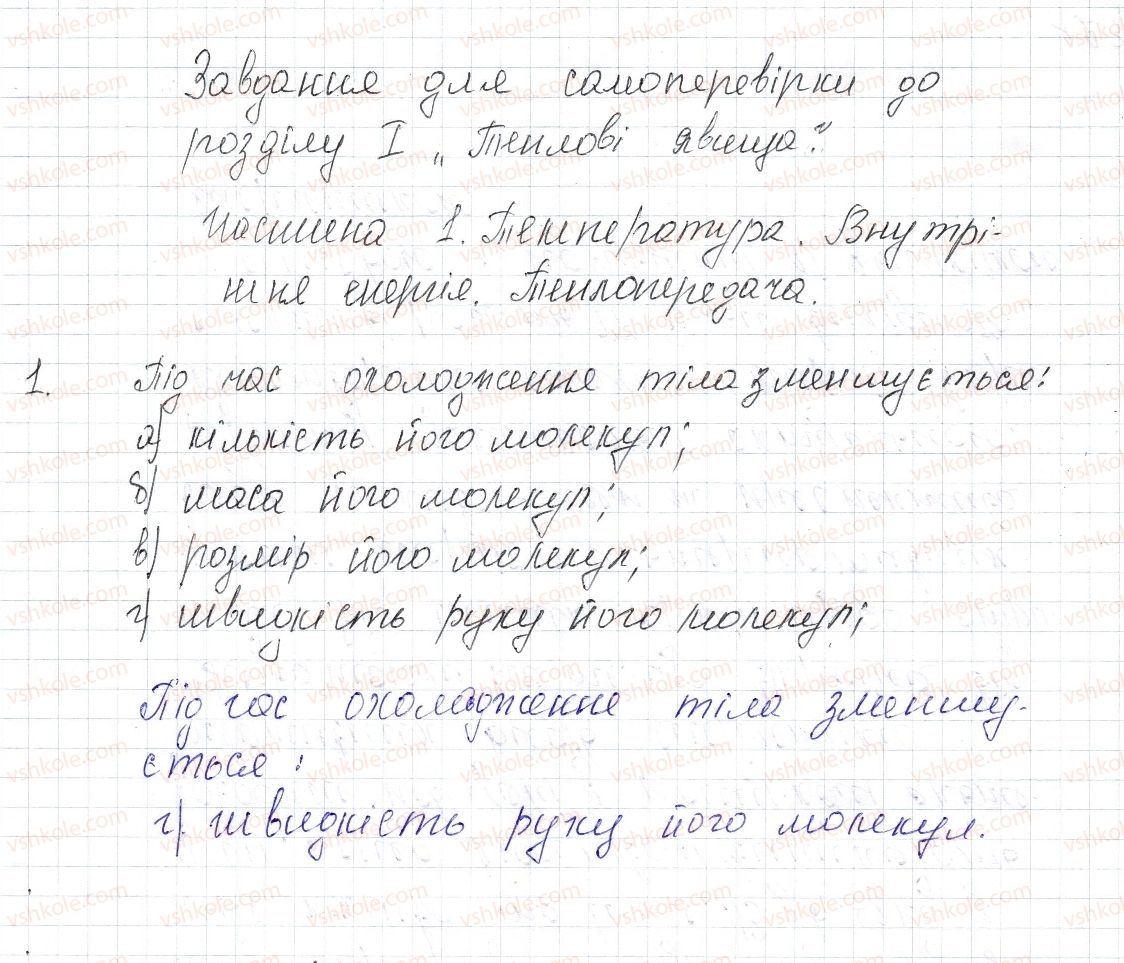 Завдання для самоперевірки до
розділу I „Теплові явища".
Частина 1. Температура. Внутрі-
шня енергія. Теплопередача.
1. Під час охолодження тіла зменшується:
а) кількість його молекул;
б) маса його молекул;
в) розмір його молекул;
г) швидкість руху його молекул;
Під час охолодження тіла зменшу-
ється:
г) швидкість руху його молекул.